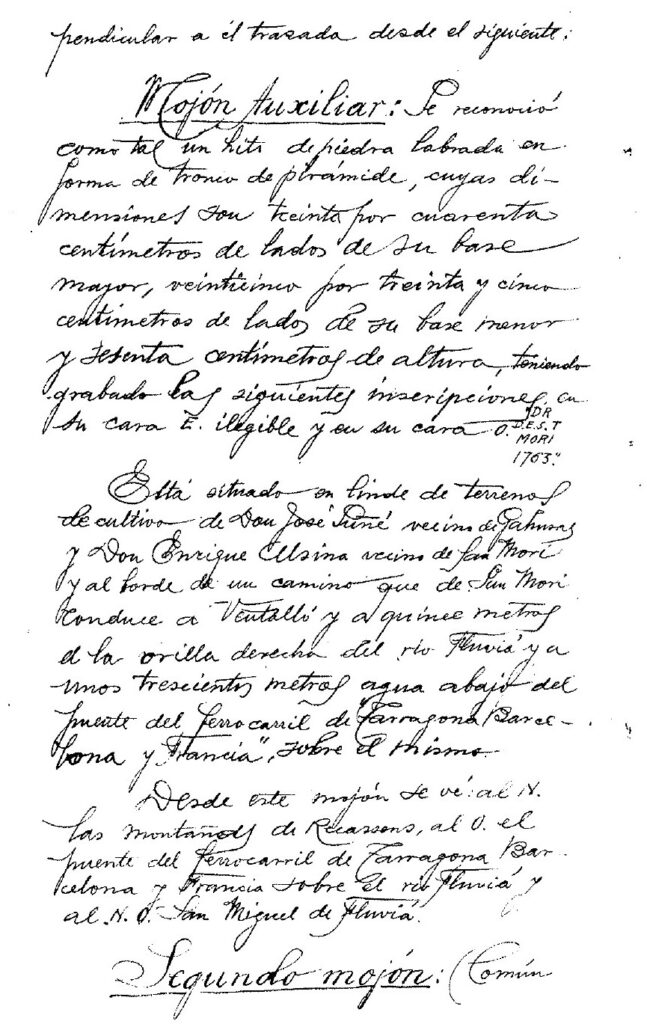 pendicular a él trazada desde el siguiente:
Mojón Auxiliar: Se reconoció
como tal un hito de piedra labrada en
forma de tronco de pirámide, cuyas di-
mensiones son treinta por cuarenta
centímetros de lados de su base
mayor, veinticinco por treinta y cinco
centimetros de lados de su base menor
y sesenta centímetros de altura, teniendo
grabado las siguientes inscripciones, en
su cara E. ilegible y en su cara O. "DR
D.E.S.T
MORI
1763."
Está situado en linde de terrenos
de cultivo de Don José Suñé vecino de
y Don Enrique Alsina vecino de San Mori
y al borde de un camino que de San Mori
conduce a Ventalló y a quince metros
d la orilla derecha del río Fluviá y a
unos trescientos metros agua abajo del
puente del ferrocarril de "Tarragona Barce-
lona y Francia", sobre el mismo.
Desde este mojón se vé: al N.
las montañas de Recassens, al O. el
puente del ferrocarril de Tarragona Bar-
celona y Francia sobre el río Fluviá y
al N.O. San Miguel de Fluviá.
Segundo mojón: (Común